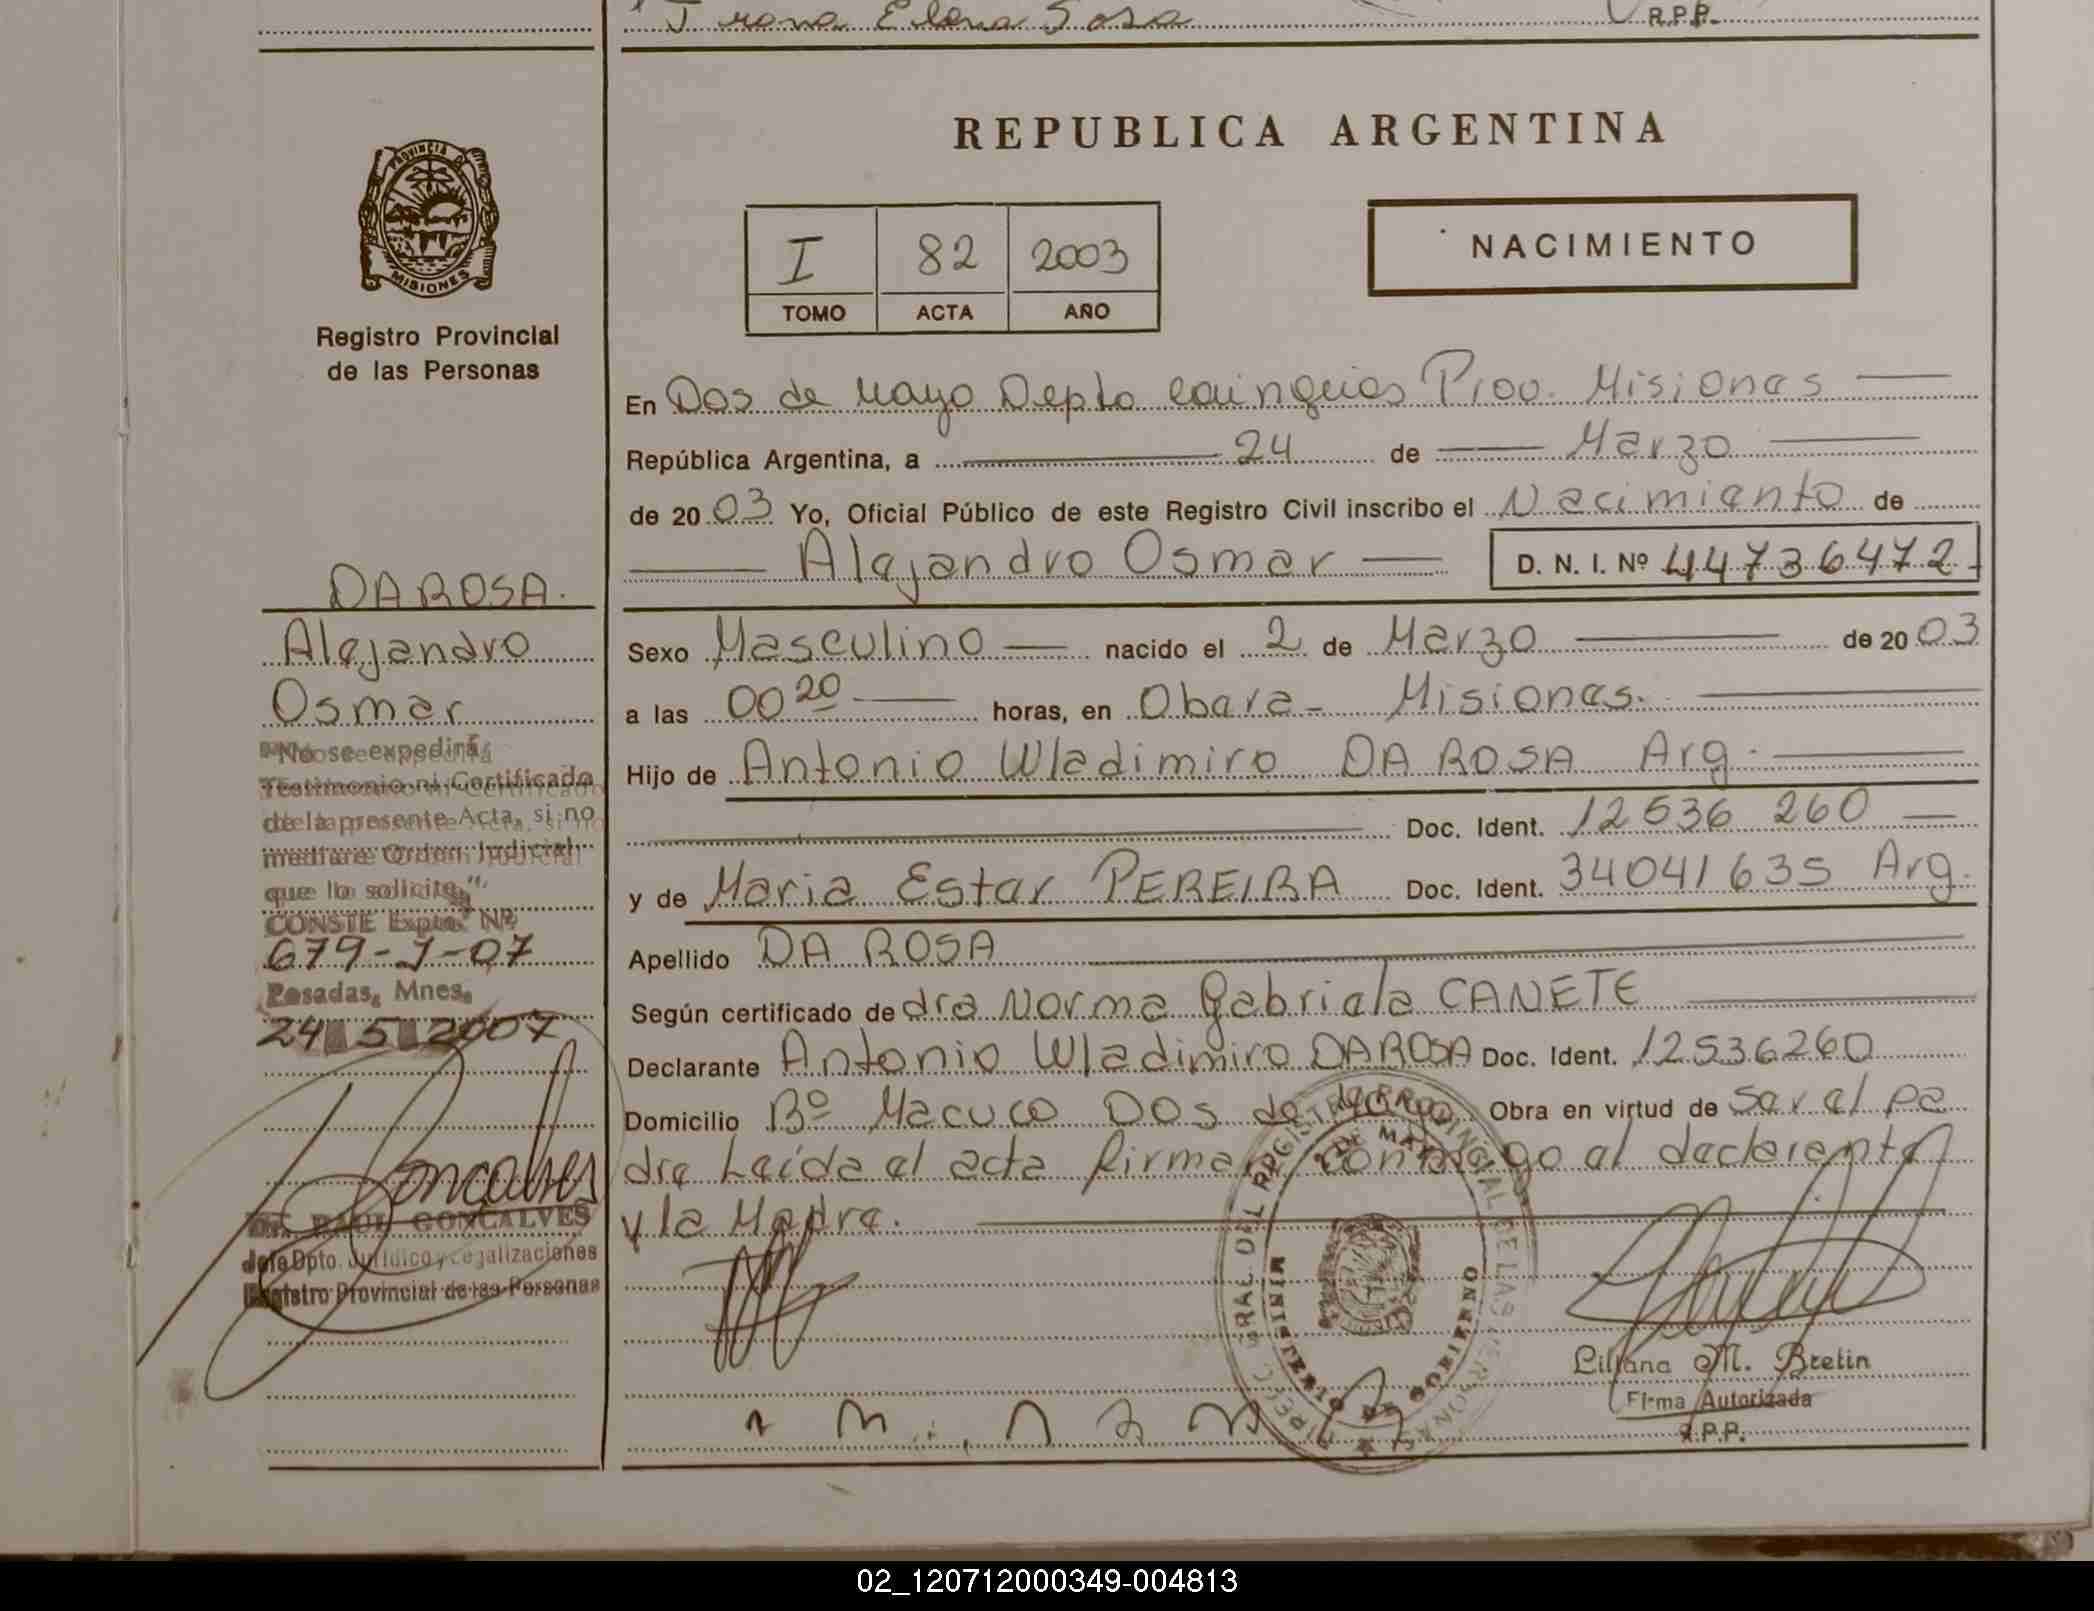 Irena Elena Sosa
R.P.P.
REPUBLICA ARGENTINA
PROVINCIA DE
MISIONES
Registro Provincial
de las Personas
I 82 2003
TOMO ACTA AÑO
NACIMIENTO
En Dos de Mayo Depto Cainguias Prov. Misiones
República Argentina, a 24 de Marzo
de 2003 Yo, Oficial Público de este Registro Civil inscribo el Nacimiento de
Alejandro Osmar D. N. I. Nº 44736472
DA ROSA.
Alejandro
Osmar
"No se expedirá
Testimonio ni Certificado
de la presente Acta, si no
mediare Orden Judicial
que lo solicite"
CONSTE Expte. Nº
679-J-07
Posadas, Mnes,
24 5 2007
Goncalves
Dr. RAUL GONCALVES
Jefe Dpto. Jurídico y Legalizaciones
Registro Provincial de las Personas
Sexo Masculino nacido el 2 de Marzo de 2003
a las 00 20 horas, en Obera - Misiones.
Hijo de Antonio Wladimiro DA ROSA Arg.
Doc. Ident. 12536 260
y de Maria Ester PEREIRA Doc. Ident. 34041635 Arg.
Apellido DA ROSA
Según certificado de dra Norma Gabriela CANETE
Declarante Antonio Wladimiro DA ROSA Doc. Ident. 12536260
Domicilio Bº Macuco Dos de Mayo Obra en virtud de Ser el pa
dre Leída el acta firman conmigo el declarante
y la Madre.
REGISTRO PROVINCIAL DE LAS PERSONAS
2 DE MAYO
MINISTERIO DE GOBIERNO
Liliana M. Bretin
Firma Autorizada
R.P.P.
02_120712000349-004813